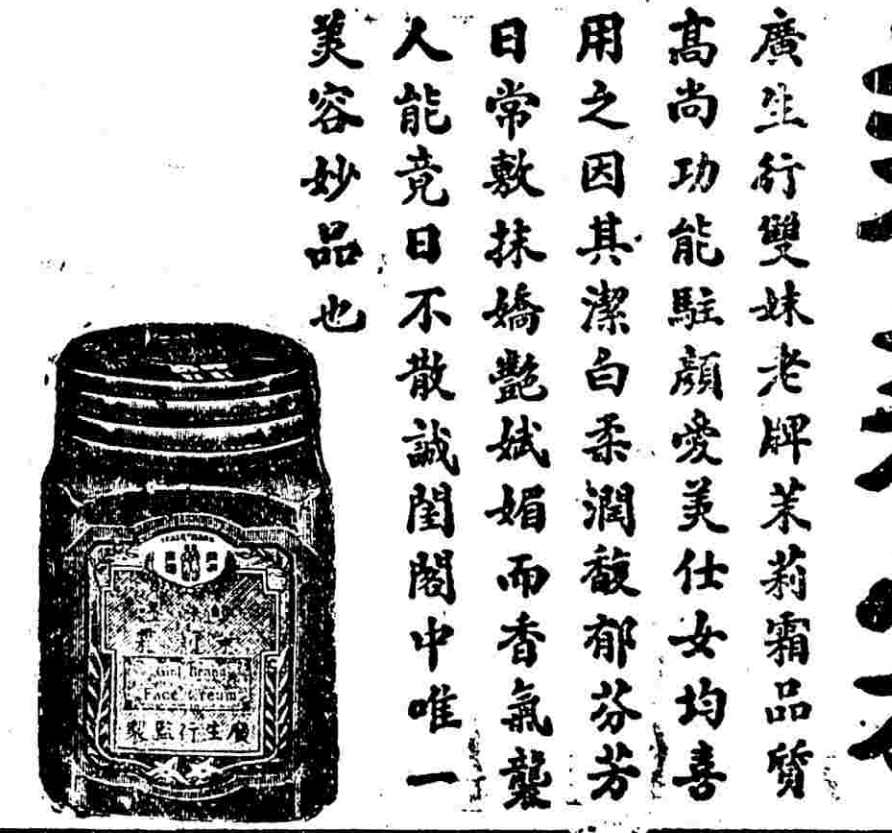 廣生行雙妹老牌茉莉霜品質
高尚功能駐顏愛美仕女均喜
用之因其潔白柔潤馥郁芬芳
日常敷抹嬌艷娬媚而香氣襲
人能竟日不散誠閨閣中唯一
美容妙品也
Girl Brand
Face Cream
廣生行監製